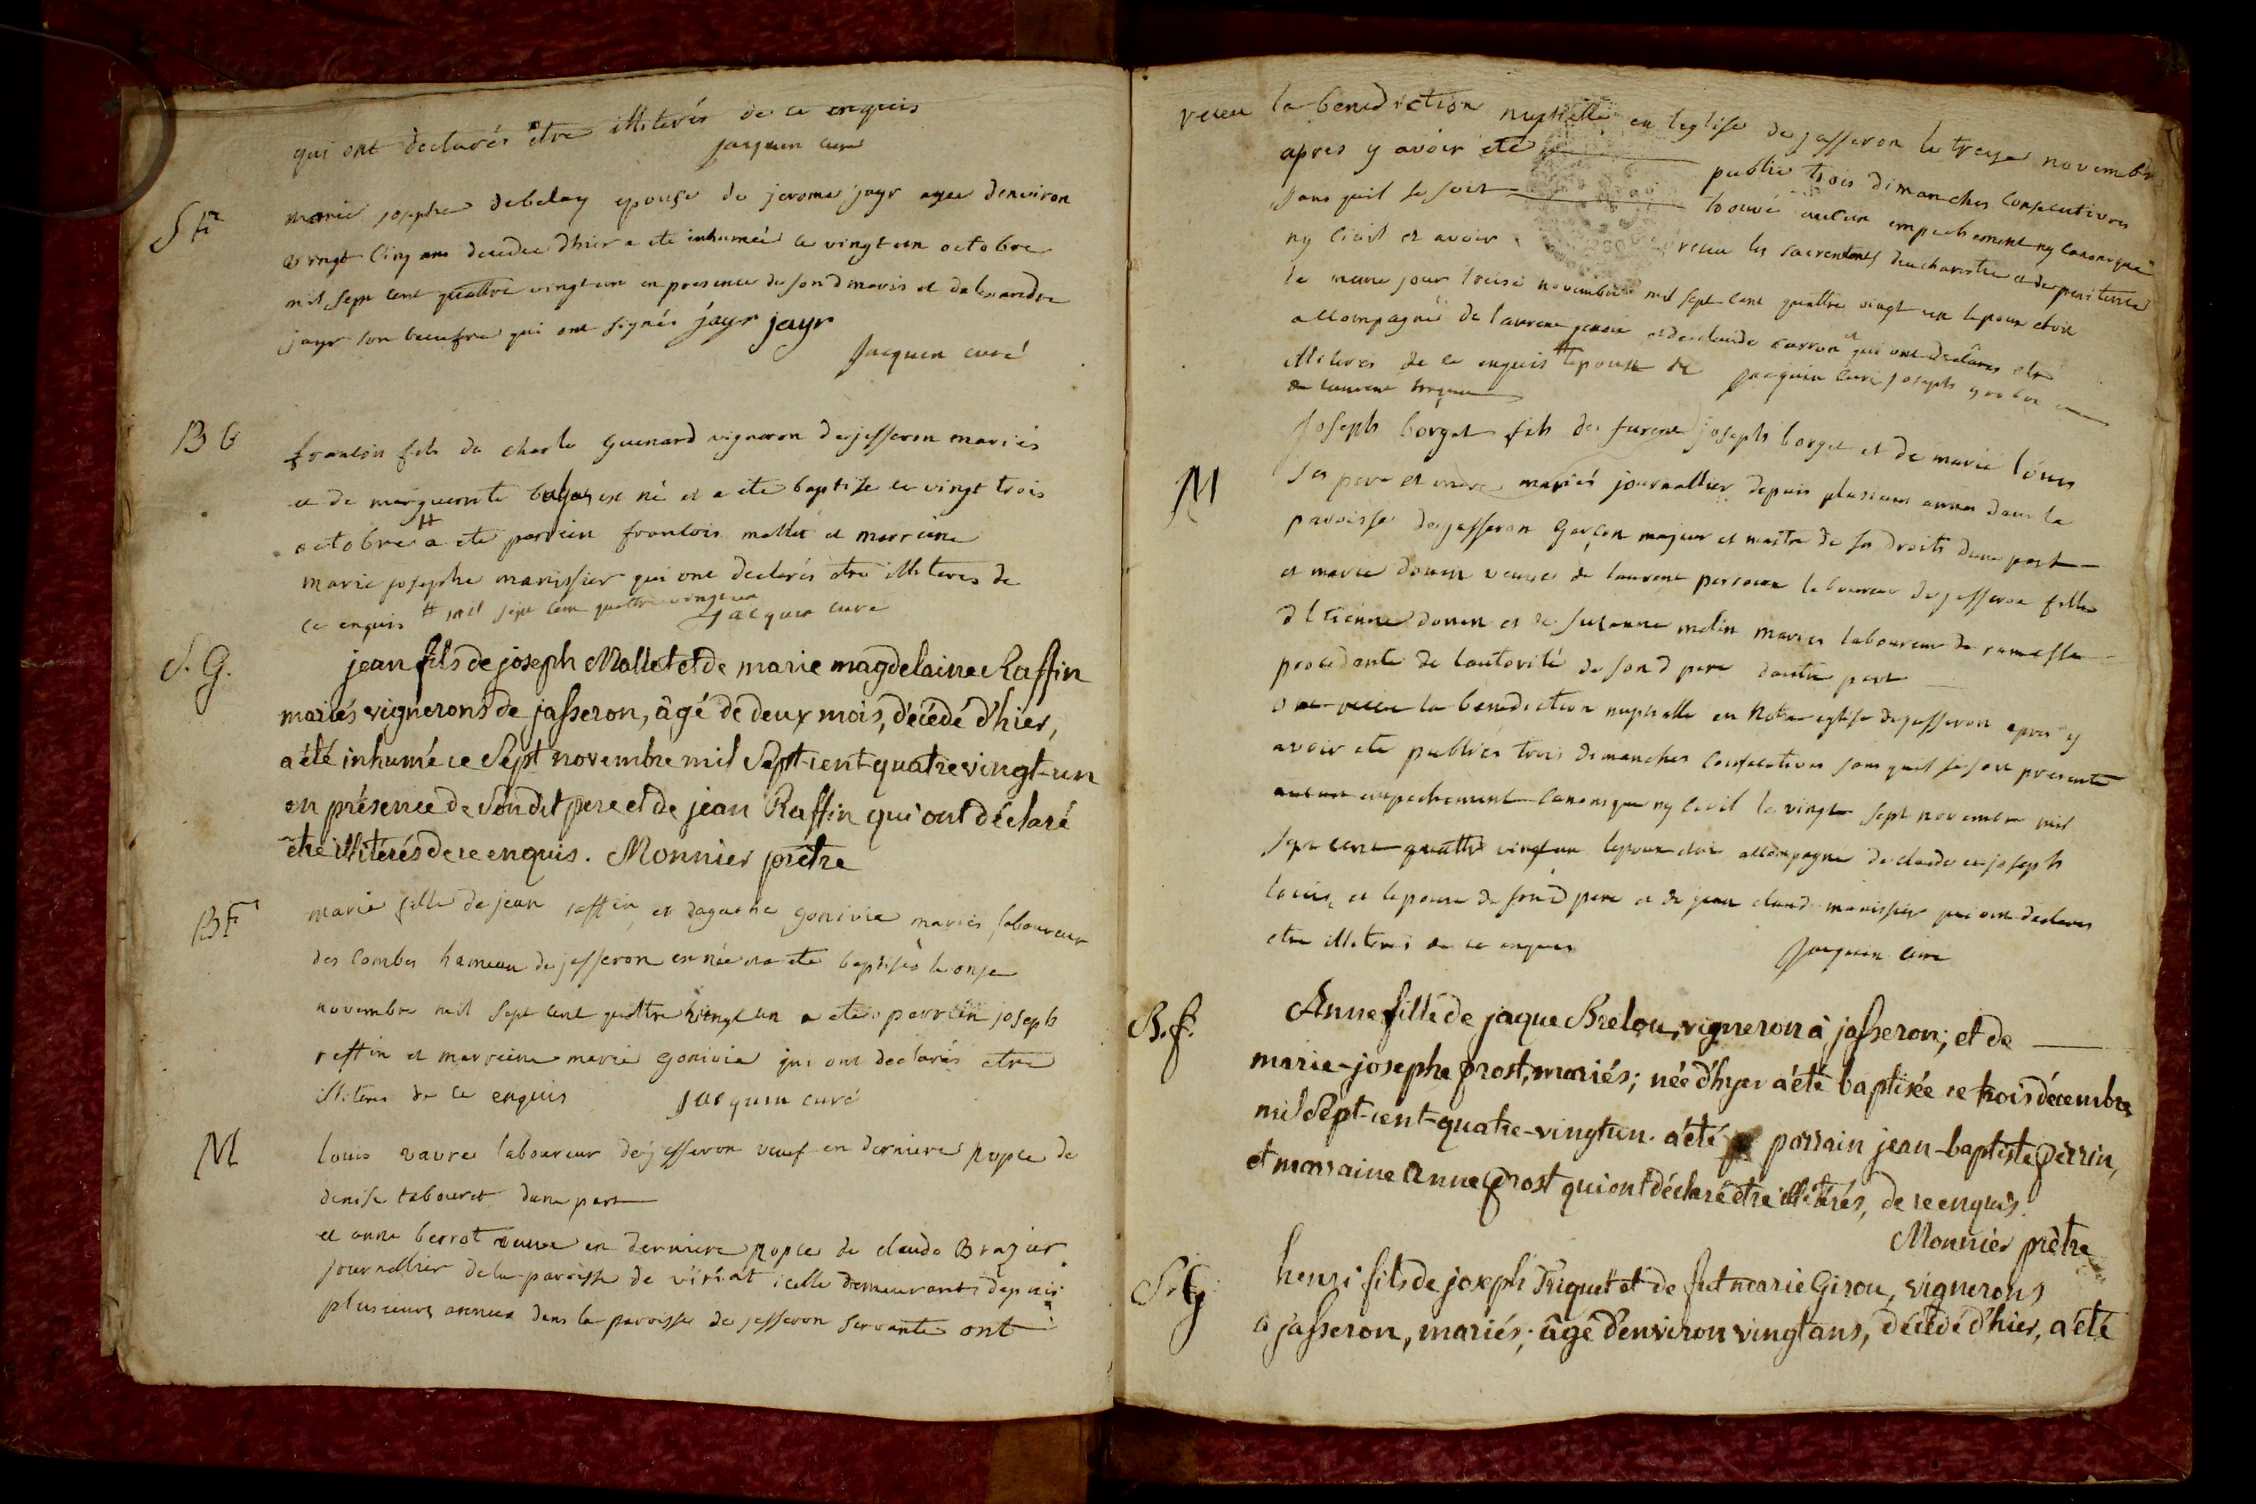 qui ont declarés être illiterés de ce enquis
jacquin curé
SF marie josephe debeley epouse de jerome jayr agee denviron
vingt cinq ans decedee dhier a ete inhumeé ce vingt un octobre
mil sept cent quattre vingt un en presence de sond maris et dalexandre
jayr son beaufre qui ont signés jayr jayr
jacquin curé
BG francois fils de charle guenard vigneron de jasseron mariés
et de margueritte est né et a ete baptise ce vingt trois
octobre # a ete parrein francois mallet et marreine
marie josephe manissier qui ont declarés etre illiteres de
ce enquis # mil sept cent quattre vingt un jacquin curé
S. G. jean fils de joseph Mallet et de marie magdelaine Raffin
mariés vignerons de jasseron, âgé de deux mois, décédé d'hier,
a été inhumé ce Sept novembre mil Sept-cent-quatre vingt-un
en présence de Son dit pere et de jean Raffin qui ont déclaré
être illitérés de ce enquis. Monnier prêtre
BF marie fille de jean raffin et dagathe gonivie mariés laboureur
des combes hameau de jasseron est née et a ete baptiseè le onse
novembre mil sept cent quattre vingt un a ete parrein joseph
raffin et marreine marie gonivie qui ont declarés etre
illiteres de ce enquis jacquin curé
M louis vavre laboureur de jasseron veuf en derniere nopce de
denise tabouret dune part
et anne berrot veuve en derniere nopce de claude Brazier
journallier de la paroisse de viriat icelle demeurante depuis
plusieurs annees dans la paroisse de jasseron servante ont
receu la benediction nuptialle en leglise de jasseron le treze novembre
apres y avoir ete publié trois dimanches consecutives
sans quil se soit trouvé aucun empechement ny canonique
ny civil et avoir receu les sacrements deucharistie et de penitence
le meme jour treise novembre mil sept cent quattre vingt un lepoux etoit
accompagné de laurent et de claude carron qui ont declares etre
illiteres de ce enquis # lepouse de jacquin curé joseph
de laurent
joseph borget fils de furent joseph borget et de marie louis
M ses pere et mere mariés journallier depuis plusieurs annes dans la
paroisse de jasseron garçon majeur et maitre de ses droits dune part
et marie donin veuve de laurent laboureur de jasseron fille
detienne donin et de suzanne molin mariés laboureur de
procedante de lautorité de sond pere dautre part
ont receu la benediction nuptialle en notre eglise de jasseron apres y
avoir ete publiés trois dimanches consecutives sans quil se soit presenté
aucun empechement canonique ny civil le vingt sept novembre mil
sept cent quattre vingt un lepoux etoit accompagné de claude et joseph
louis, et lepouse de sond pere et de jean claude manissier qui ont declarés
etre illiterés de ce enquis jacquin curé
B. f. Anne fille de jaque Brelou, vigneron à jasseron; et de
marie-josephe prost, mariés; née d'hyer a été baptisée ce trois décembre
mil Sept-cent-quatre-vingt un. a été parrain jean-baptiste perrin,
et marraine Anne prost qui ont déclaré être illitérés, de ce enquis.
Monnier prêtre
S. G henri fils de joseph Triquet et de fut marie Girou, vignerons
a jasseron, mariés; âgé d'environ vingt ans, décédé d'hier, a été